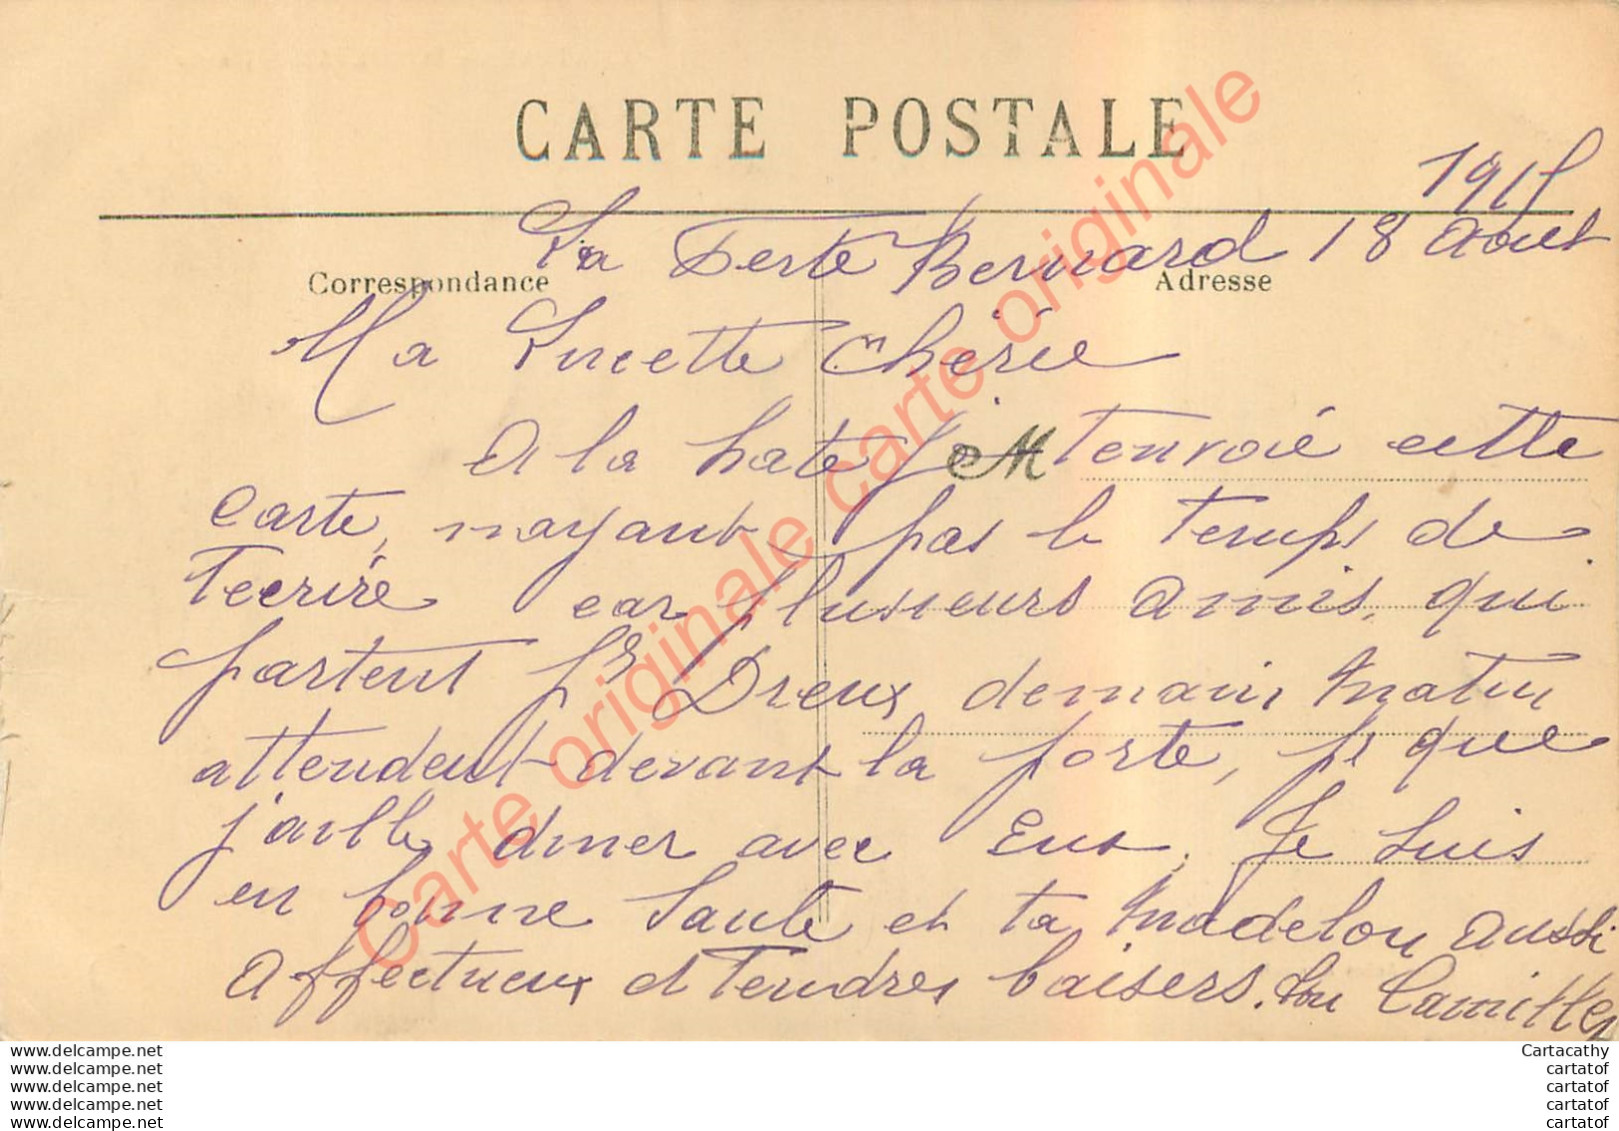 CARTE POSTALE
1915
La Ferté Bernard 18 Aout
Correspondance
Adresse
Ma Lucette Chérie
A la hate Je t'envoié cette
Carte, nayant pas le temps de
Tecrire car plusieurs amis, qui
partent pr Dreux demain matin
attendent devant la porte, pr que
j'aille diner avec Eux. Je suis
en bonne Santé et ta Madelon aussi
Affectueux et Tendres baisers. Ton Camille
Carte originale carte originale carte originale
www.delcampe.net
www.delcampe.net
www.delcampe.net
www.delcampe.net
www.delcampe.net
Cartacathy
cartatof
cartatof
cartatof
cartatof